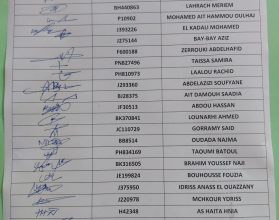 BH440863 LAHRACH MERIEM
F10902 MOHAMED AIT HAMMOU OULHAJ
I393226 EL KADALI MOHAMED
J275144 BAY-BAY AZIZ
F600188 ZERROUKI ABDELHAFID
PN827496 TAISSA SAMIRA
PHB10973 LAALOU RACHID
J293360 ABDELAZIZI SOUFYANE
BJ28375 AIT DAMOUH SAADIA
JF30513 ABDOU HASSAN
BK370841 LOUNARHI AHMED
JC110729 GORRAMY SAID
BB8514 OUDADA NAJMA
PHB34169 TAOUMI BATOUL
BK316505 BRAHIM YOUSSEF NAJI
JE199824 BOUHOUSSE FOUZIA
J375950 IDRISS ANASS EL OUAZZANY
J220978 MCHKOUR YOUSSEF
H42348 AS HAITA HNIA